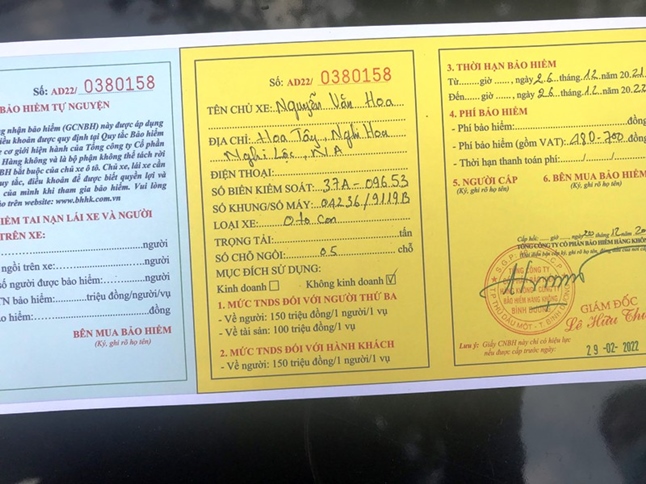 Số: AD22/ 0380158
BẢO HIỂM TỰ NGUYỆN
ng nhận bảo hiểm (GCNBH) này được áp dụng
điều khoản được quy định tại Quy tắc Bảo hiểm
e cơ giới hiện hành của Tổng công ty Cổ phần
Hàng không và là bộ phận không thể tách rời
BH bắt buộc của chủ xe ô tô. Chủ xe, lái xe cần
uy tắc, điều khoản để được biết quyền lợi và
của mình khi tham gia bảo hiểm. Vui lòng
o trên website: www.bhhk.com.vn
IỂM TAI NẠN LÁI XE VÀ NGƯỜI
TRÊN XE:
người
ngồi trên xe: người
số người được bảo hiểm: người
N bảo hiểm: triệu đồng/người/vụ
ảo hiểm: đồng
BÊN MUA BẢO HIỂM
(Ký, ghi rõ họ tên)
Số: AD22/ 0380158
TÊN CHỦ XE: Nguyễn Văn Hoa
ĐỊA CHỈ: Hoa Tây, Nghi Hoa
Nghi Lộc, N.A
ĐIỆN THOẠI:
SỐ BIỂN KIỂM SOÁT: 37A-096.53
SỐ KHUNG/SỐ MÁY: 04236/9119B
LOẠI XE: Oto con
TRỌNG TẢI: tấn
SỐ CHỖ NGỒI: 05 chỗ
MỤC ĐÍCH SỬ DỤNG:
Kinh doanh Không kinh doanh
1. MỨC TNDS ĐỐI VỚI NGƯỜI THỨ BA
- Về người: 150 triệu đồng/1 người/1 vụ
- Về tài sản: 100 triệu đồng/1 vụ
2. MỨC TNDS ĐỐI VỚI HÀNH KHÁCH
- Về người: 150 triệu đồng/1 người/1 vụ
3. THỜI HẠN BẢO HIỂM
Từ......giờ ......, ngày 26 tháng 12 20 21
Đến......giờ ......, ngày 26 tháng 12 20 22
4. PHÍ BẢO HIỂM
- Phí bảo hiểm: đồng
- Phí bảo hiểm (gồm VAT): 480.700 đồng
- Thời hạn thanh toán phí:
5. NGƯỜI CẤP 6. BÊN MUA BẢO HIỂM
(Ký, ghi rõ họ tên)
Cấp hồi: ..... giờ ..... ngày 20 / 12 / 20
TỔNG CÔNG TY CỔ PHẦN BẢO HIỂM HÀNG KHÔNG
TỔNG CÔNG TY
BẢO HIỂM HÀNG KHÔNG
BÌNH DƯƠNG
TP THỦ DẦU MỘT - T. BÌNH DƯƠNG
GIÁM ĐỐC
Lê Hữu
Lưu ý: Giấy CNBH này chỉ có hiệu lực
nếu được cấp trước ngày: 29-02-2022